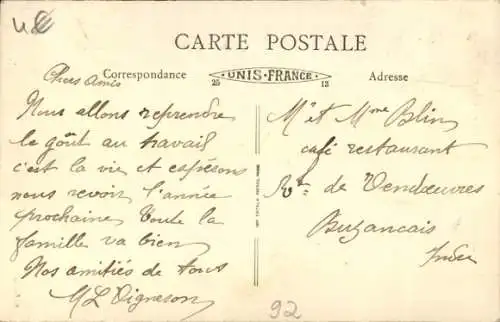 CARTE POSTALE
Correspondance
UNIS-FRANCE
25
13
Adresse
Chers Amis
Nous allons reprendre
le goût au travail
c'est la vie et espérons
nous revoir l'année
prochaine Toute la
famille va bien
Nos amitiés de tous
M L Vigneson
Mr et Mme Blin
café restaurant
Rte de Vendoeuvres
Buzancais
Indre
92